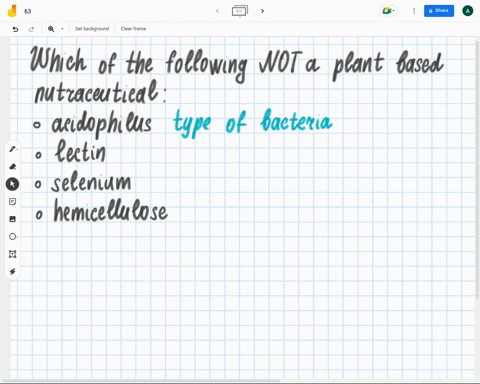 63
1/1
Share
A
Set background
Clear frame
Which of the following NOT a plant based
nutraceutical:
acidophilus type of bacteria
lectin
selenium
hemicellulose